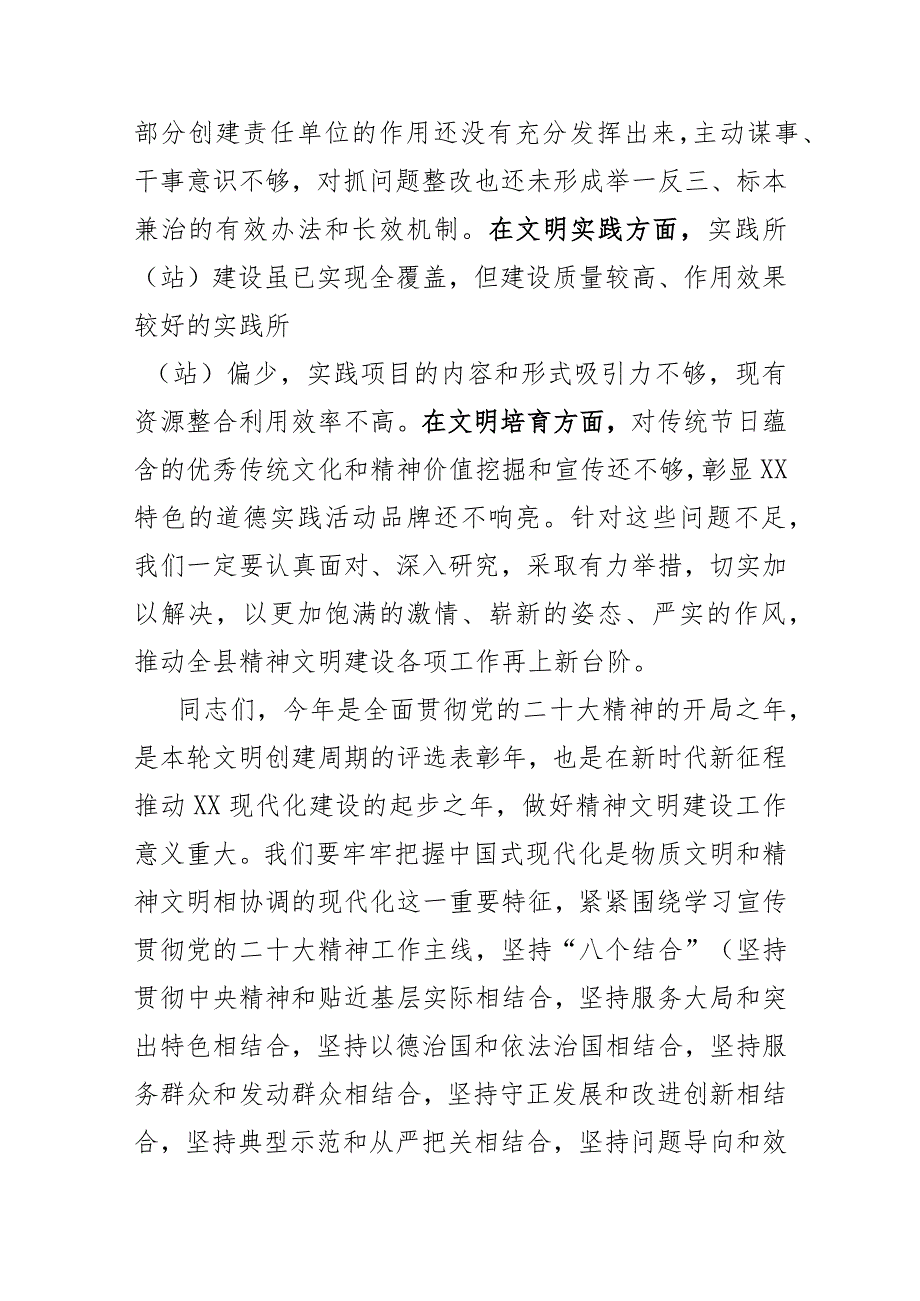 部分创建责任单位的作用还没有充分发挥出来，主动谋事、
干事意识不够，对抓问题整改也还未形成举一反三、标本
兼治的有效办法和长效机制。在文明实践方面，实践所
（站）建设虽已实现全覆盖，但建设质量较高、作用效果
较好的实践所
（站）偏少，实践项目的内容和形式吸引力不够，现有
资源整合利用效率不高。在文明培育方面，对传统节日蕴
含的优秀传统文化和精神价值挖掘和宣传还不够，彰显 XX
特色的道德实践活动品牌还不响亮。针对这些问题不足，
我们一定要认真面对、深入研究，采取有力举措，切实加
以解决，以更加饱满的激情、崭新的姿态、严实的作风，
推动全县精神文明建设各项工作再上新台阶。
同志们，今年是全面贯彻党的二十大精神的开局之年，
是本轮文明创建周期的评选表彰年，也是在新时代新征程
推动 XX 现代化建设的起步之年，做好精神文明建设工作
意义重大。我们要牢牢把握中国式现代化是物质文明和精
神文明相协调的现代化这一重要特征，紧紧围绕学习宣传
贯彻党的二十大精神工作主线，坚持“八个结合”（坚持
贯彻中央精神和贴近基层实际相结合，坚持服务大局和突
出特色相结合，坚持以德治国和依法治国相结合，坚持服
务群众和发动群众相结合，坚持守正发展和改进创新相结
合，坚持典型示范和从严把关相结合，坚持问题导向和效